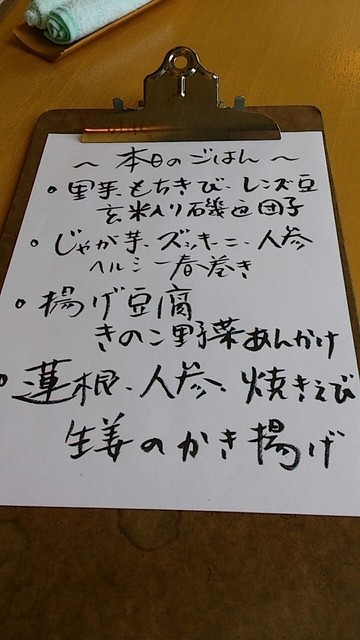 ～本日のごはん～
・里芋、もちきび、レンズ豆
玄米入り磯辺団子
・じゃが芋、ズッキーニ、人参
ヘルシー春巻き
・揚げ豆腐
きのこ野菜あんかけ
・蓮根、人参、焼きえび
生姜のかき揚げ